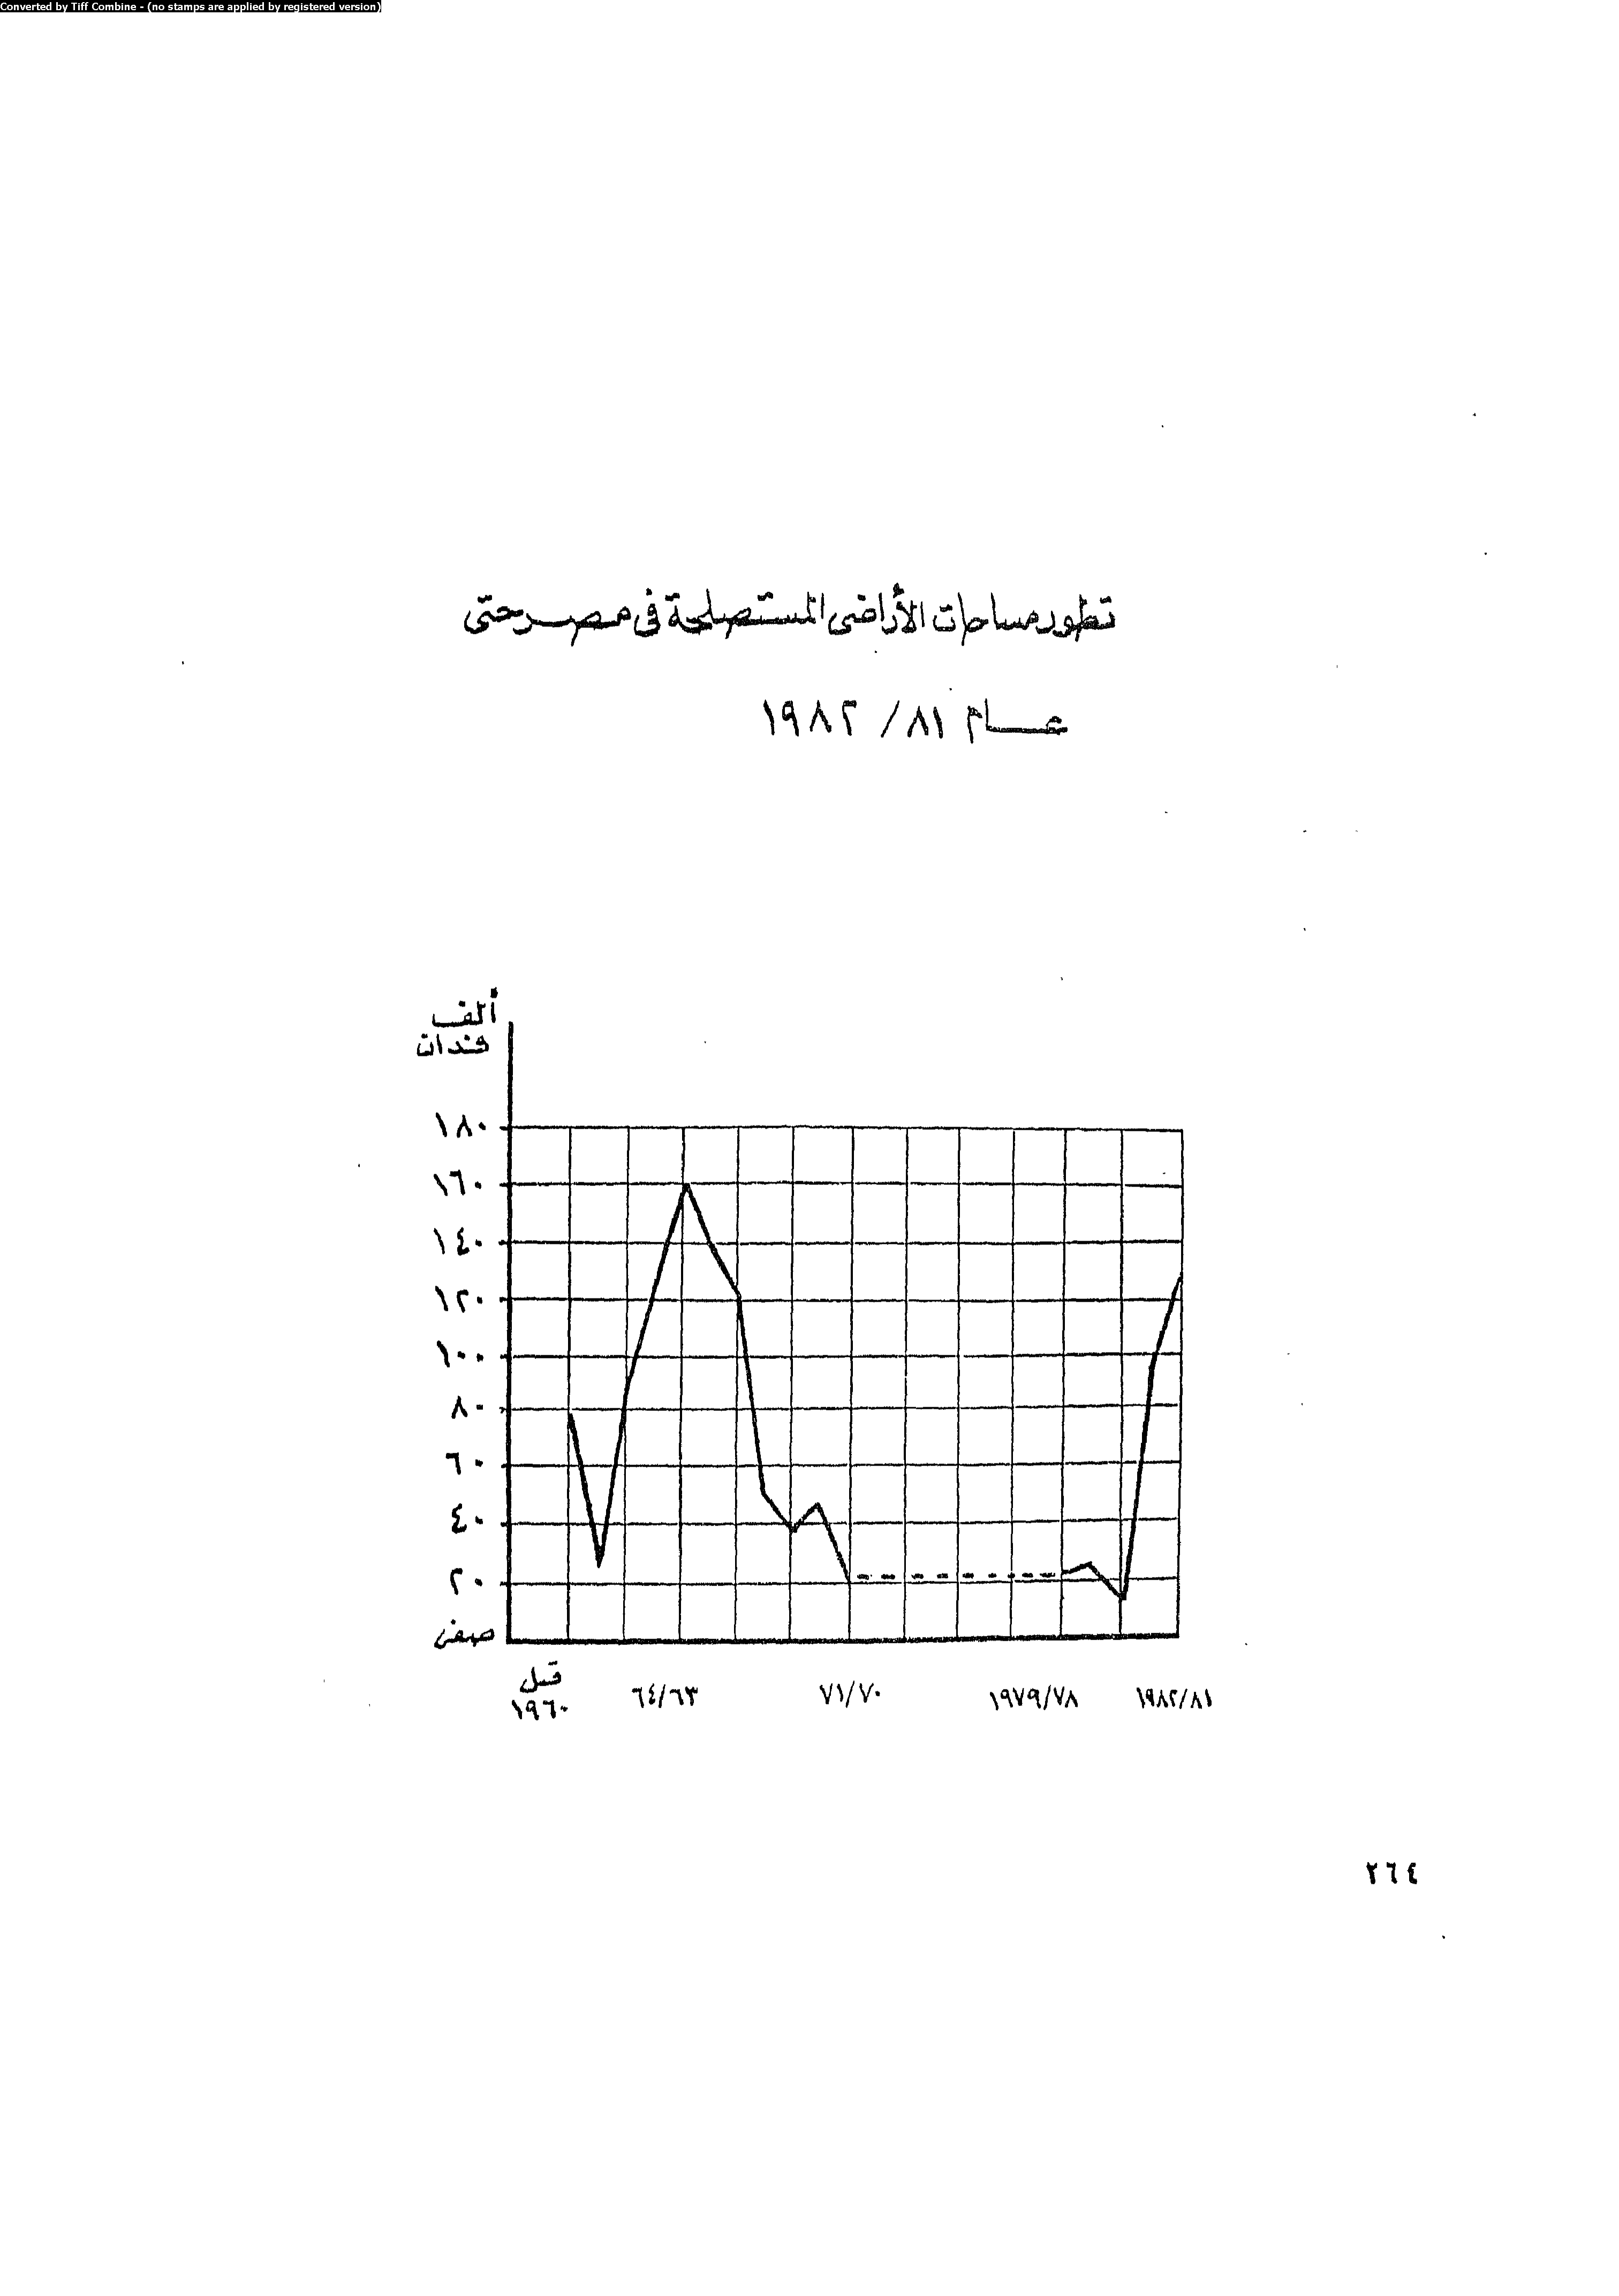 Converted by Tiff Combine - (no stamps are applied by registered version)
تطور مساحات الأراضى المستصلحة فى مصر حتى
عام ٨١/ ١٩٨٢
ألف
فدان
١٨٠
١٦٠
١٤٠
١٢٠
١٠٠
٨٠
٦٠
٤٠
٢٠
صفر
قبل
١٩٦٠
٦٤/٦٣
٧١/٧٠
١٩٧٩/٧٨
١٩٨٢/٨١
٢٦٤